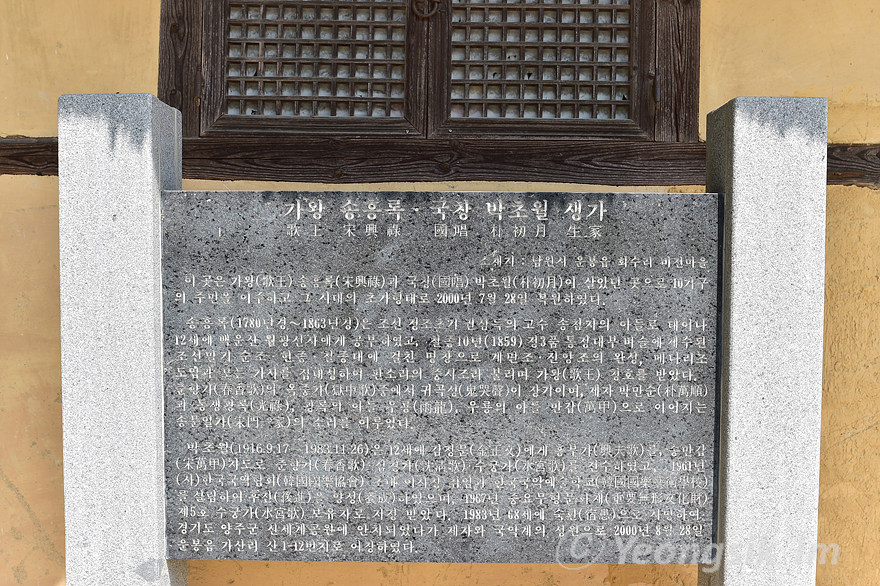 가왕 송흥록·국창 박초월 생가
歌王 宋興祿 國唱 朴初月 生家
소재지 : 남원시 운봉읍 화수리 비전마을
이 곳은 가왕(歌王) 송흥록(宋興祿)과 국창(國唱) 박초월(朴初月)이 살았던 곳으로 10가구
의 주민을 이주하고 그 시대의 초가형태로 2000년 7월 28일 복원하였다.
송흥록(1780년경~1863년경)은 조선 정조초기 권삼득의 고수 송첨지의 아들로 태어나
12세에 백운산 월광선사에게 공부하였고, 철종10년(1859) 정3품 통정대부 벼슬에 제수된
조선말기 순조·헌종·철종대에 걸친 명창으로 계면조·진양조의 완성, 메나리조
도입과 모든 가사를 집대성하여 판소리의 중시조라 불리며 가왕(歌王) 칭호를 받았다.
춘향가(春香歌)의 옥중가(獄中歌)중에서 귀곡성(鬼哭聲)이 장기이며, 제자 박만순(朴萬順)
의 동생광록(光祿), 광록의 아들 우룡(雨龍), 우룡의 아들 만갑(萬甲)으로 이어지는
송문일가(宋門一家)의 소리를 이루었다.
박초월(1916.9.17 - 1983.11.26)은 12세에 김정문(金正文)에게 흥부가(興夫歌)를, 송만갑
(宋萬甲)지도로 춘향가(春香歌) 심청가(沈淸歌) 수궁가(水宮歌)를 전수하였고, 1961년
(사)한국국악협회(韓國國樂協會) 이사장 한국국악예술학교(韓國國樂藝術學校)
를 설립하여 후진(後進)을 양성(養成)하였으며, 1967년 중요무형문화재(重要無形文化財)
제5호 수궁가(水宮歌) 보유자로 지정 받았다. 1983년 68세에 숙환(宿患)으로 사망하여
경기도 양주군 신세계공원에 안치되었다가 제자와 국악계의 성원으로 2000년 8월 28일
운봉읍 가산리 산 1-12번지로 이장하였다.